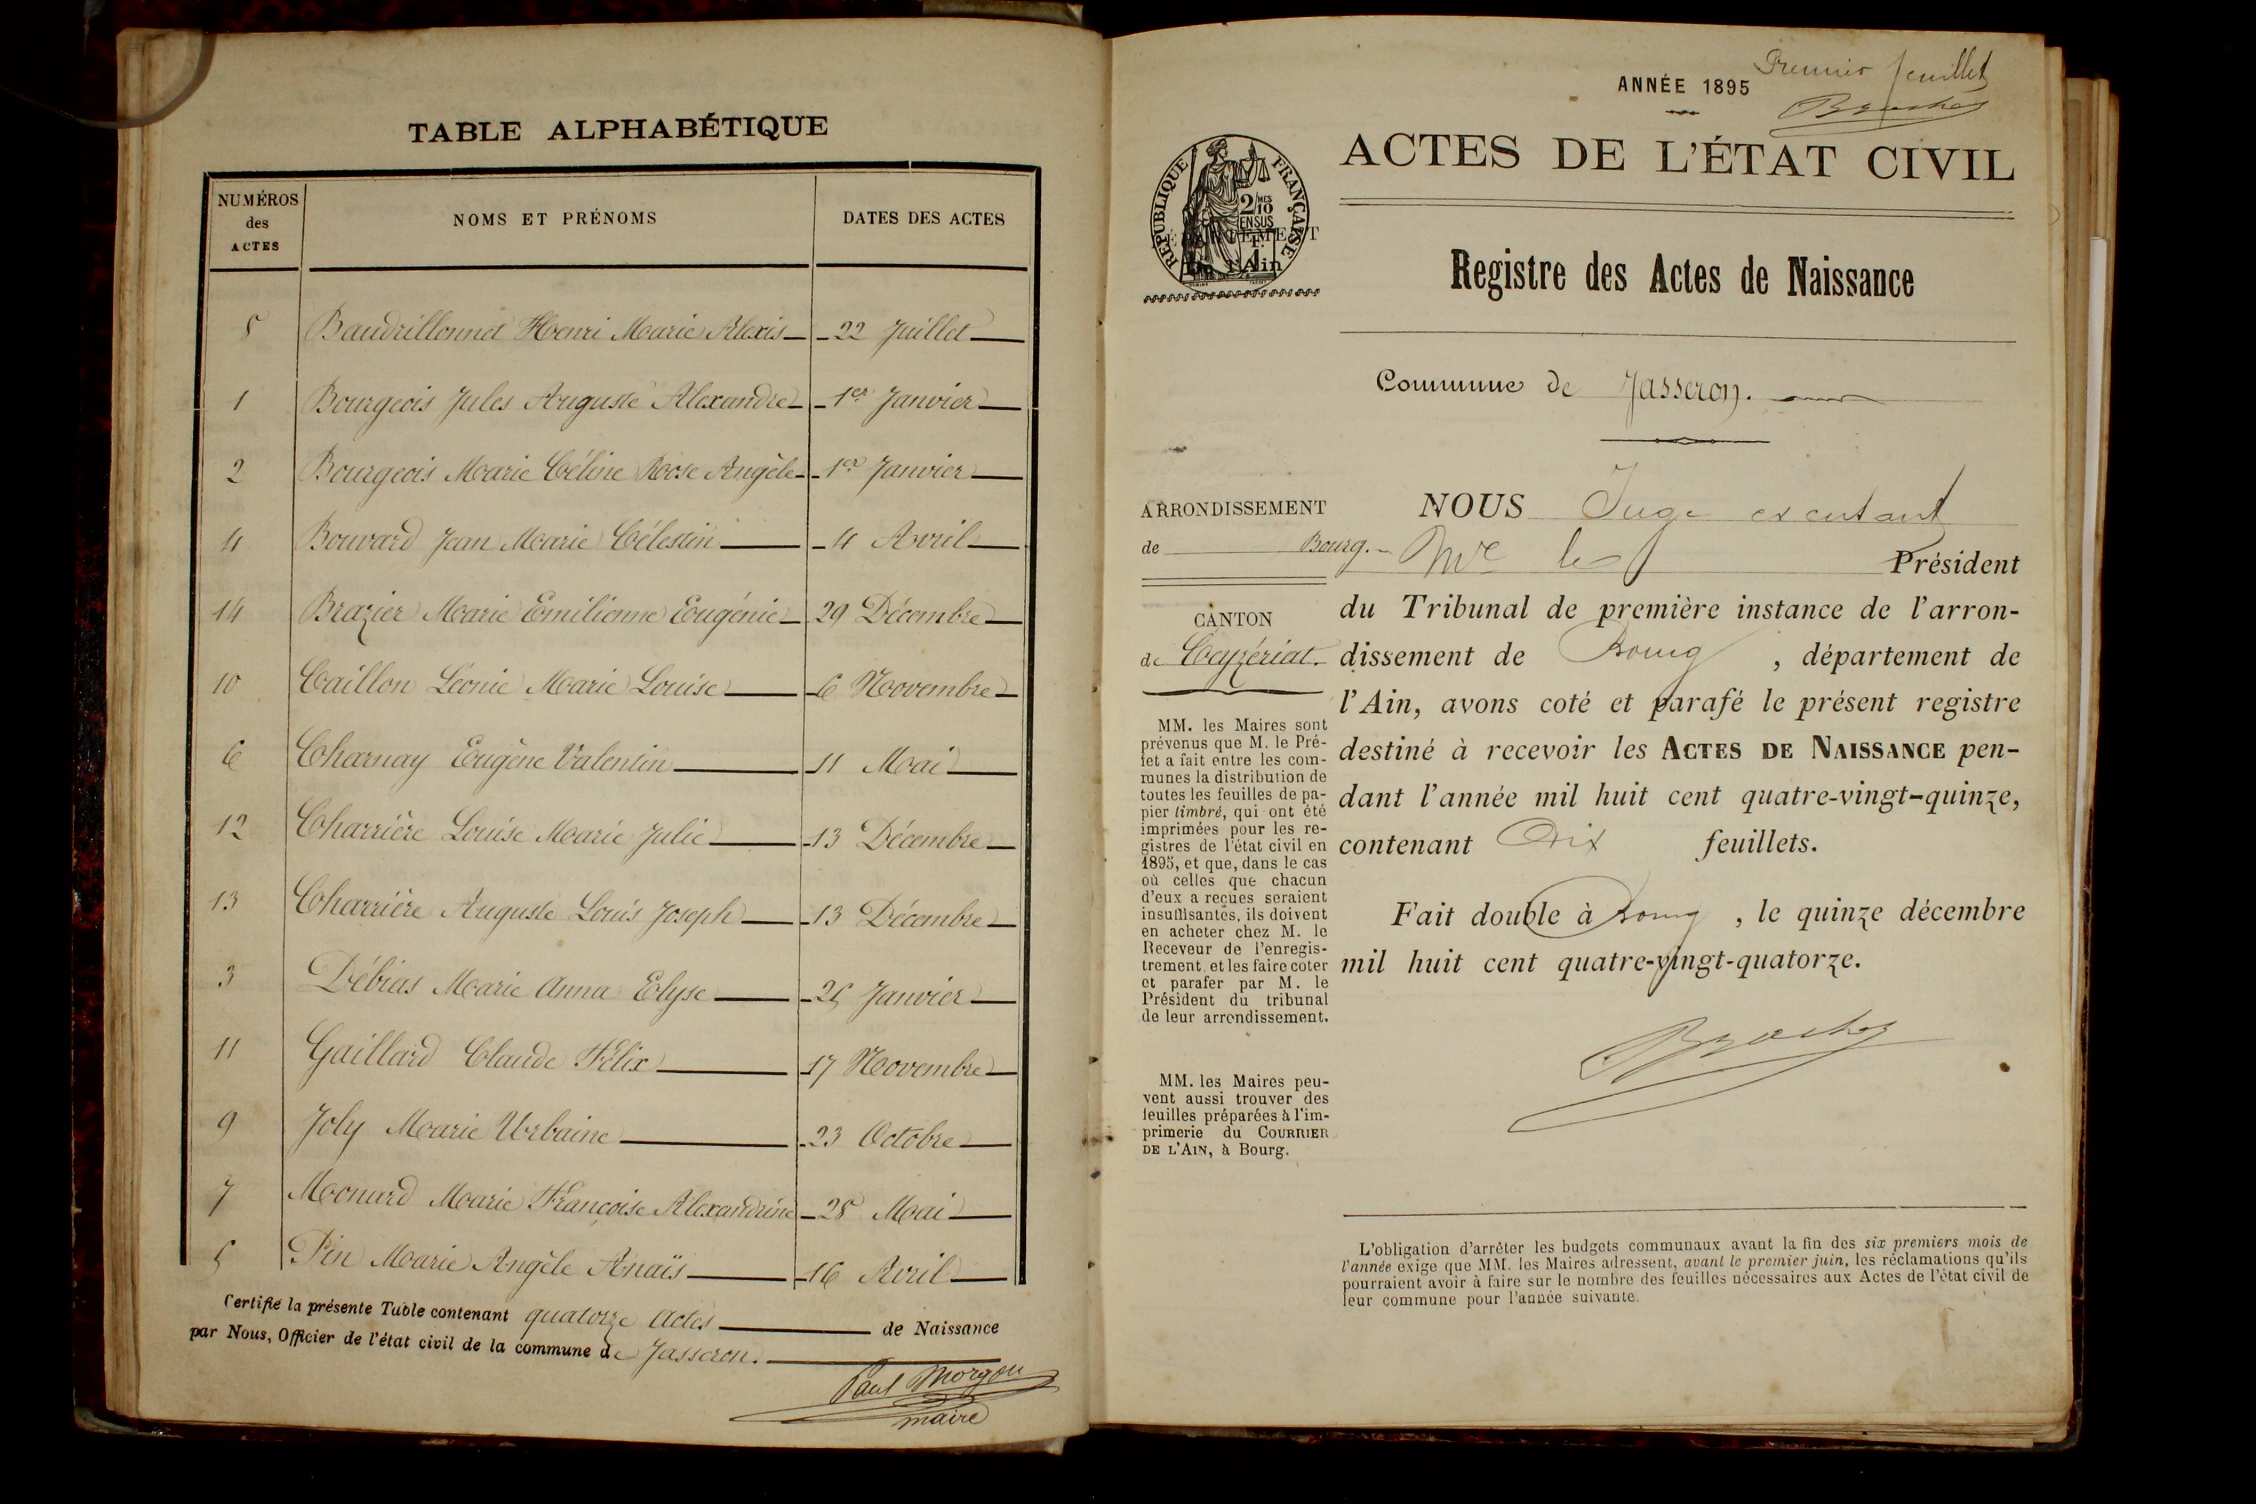 TABLE ALPHABÉTIQUE
NUMÉROS des ACTES NOMS ET PRÉNOMS DATES DES ACTES
8 Baudrillonnet Henri Marie Alexis 22 Juillet
1 Bourgeois Jules Auguste Alexandre 1er Janvier
2 Bourgeois Marie Céline Rose Angèle 1er Janvier
4 Bouvard Jean Marie Célestin 4 Avril
14 Brazier Marie Emilienne Eugénie 29 Décembre
10 Caillon Léonie Marie Louise 6 Novembre
6 Charnay Eugène Valentin 11 Mai
12 Charrière Louise Marie Julie 13 Décembre
13 Charrière Auguste Louis Joseph 13 Décembre
3 Débias Marie Anna Elyse 25 Janvier
11 Gaillard Claude Félix 17 Novembre
9 Joly Marie Urbaine 23 Octobre
7 Monard Marie Françoise Alexandrine 28 Mai
5 Pin Marie Angèle Anaïs 16 Avril
Certifié la présente Table contenant quatorze actes de Naissance
par Nous, Officier de l'état civil de la commune de Jasseron.
Paul Morgon
maire
Premier feuillet
ANNÉE 1895
ACTES DE L'ÉTAT CIVIL
RÉPUBLIQUE FRANÇAISE
2/10 MES
EN SUS
1F.
Registre des Actes de Naissance
Commune de Jasseron.
ARRONDISSEMENT
de Bourg.
CANTON
de Ceyzériat.
MM. les Maires sont
prévenus que M. le Pré-
fet a fait entre les com-
munes la distribution de
toutes les feuilles de pa-
pier timbré, qui ont été
imprimées pour les re-
gistres de l'état civil en
1895, et que, dans le cas
où celles que chacun
d'eux a reçues seraient
insuffisantes, ils doivent
en acheter chez M. le
Receveur de l'enregis-
trement et les faire coter
et parafer par M. le
Président du tribunal
de leur arrondissement.
MM. les Maires peu-
vent aussi trouver des
feuilles préparées à l'im-
primerie du COURRIER
DE L'AIN, à Bourg.
NOUS Juge
Président
du Tribunal de première instance de l'arron-
dissement de Bourg, département de
l'Ain, avons coté et parafé le présent registre
destiné à recevoir les ACTES DE NAISSANCE pen-
dant l'année mil huit cent quatre-vingt-quinze,
contenant Dix feuillets.
Fait double à Bourg, le quinze décembre
mil huit cent quatre-vingt-quatorze.
L'obligation d'arrêter les budgets communaux avant la fin des six premiers mois de
l'année exige que MM. les Maires adressent, avant le premier juin, les réclamations qu'ils
pourraient avoir à faire sur le nombre des feuilles nécessaires aux Actes de l'état civil de
leur commune pour l'année suivante.